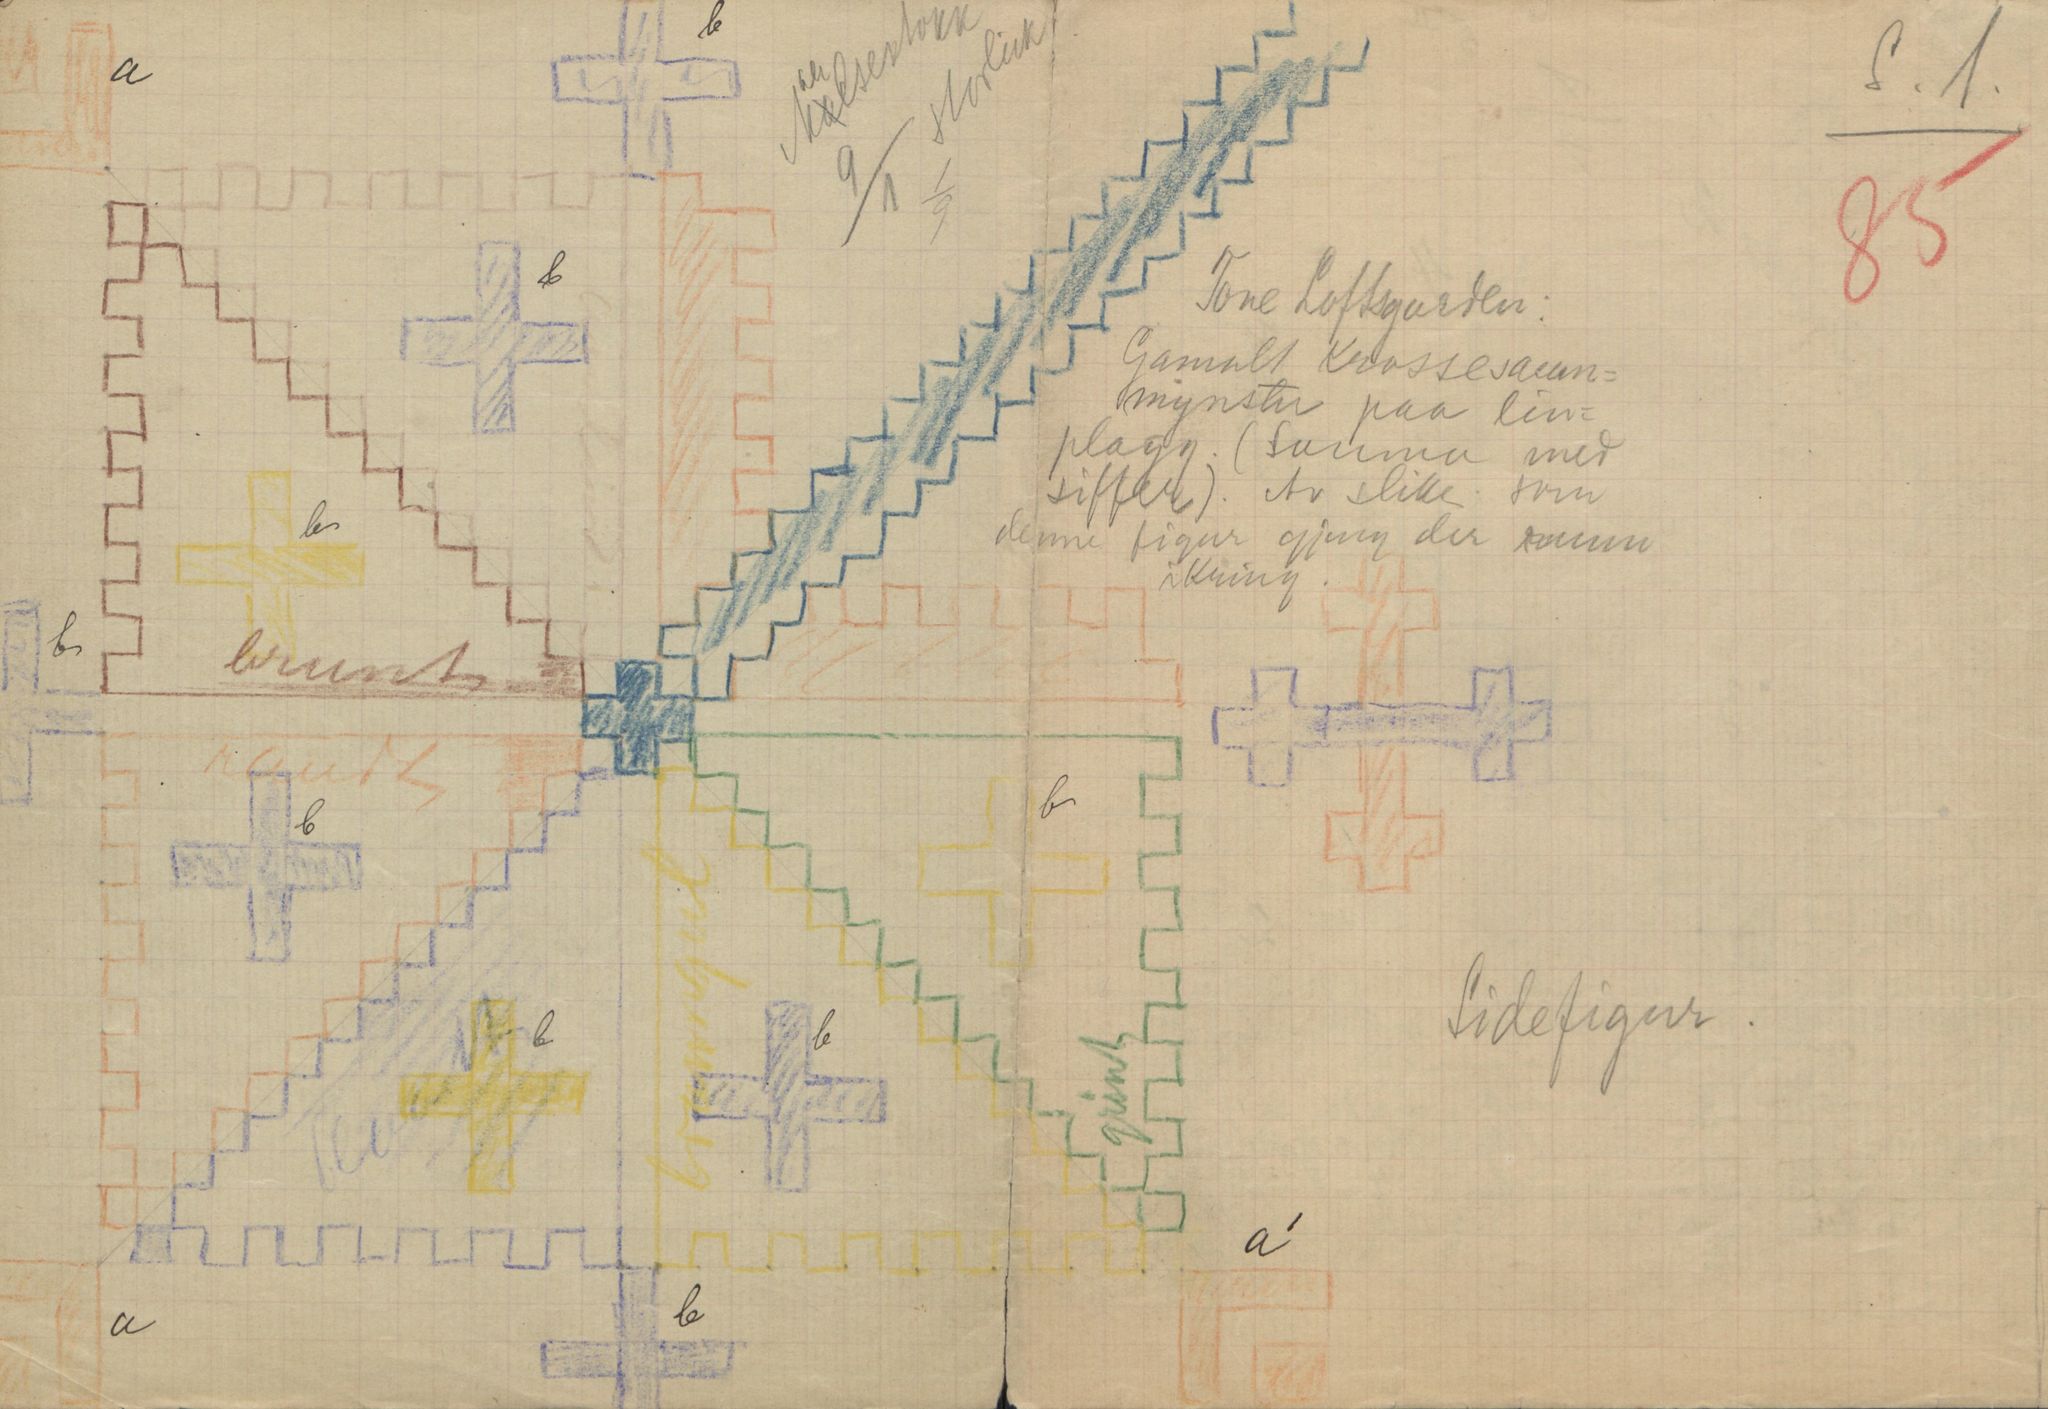 a
b
9/1 storleik
1/9
S. 1.
85
b
Tone Loftsgarden:
Gamalt Krossesaum=
mynster paa lin=
plagg. (Sauma med
siffer). Av slike som
denne figur gjeng der
ikring.
b
b
brunt
raudt
b
b
brungul
b
b
grönt
Sidefigur.
a'
a
b